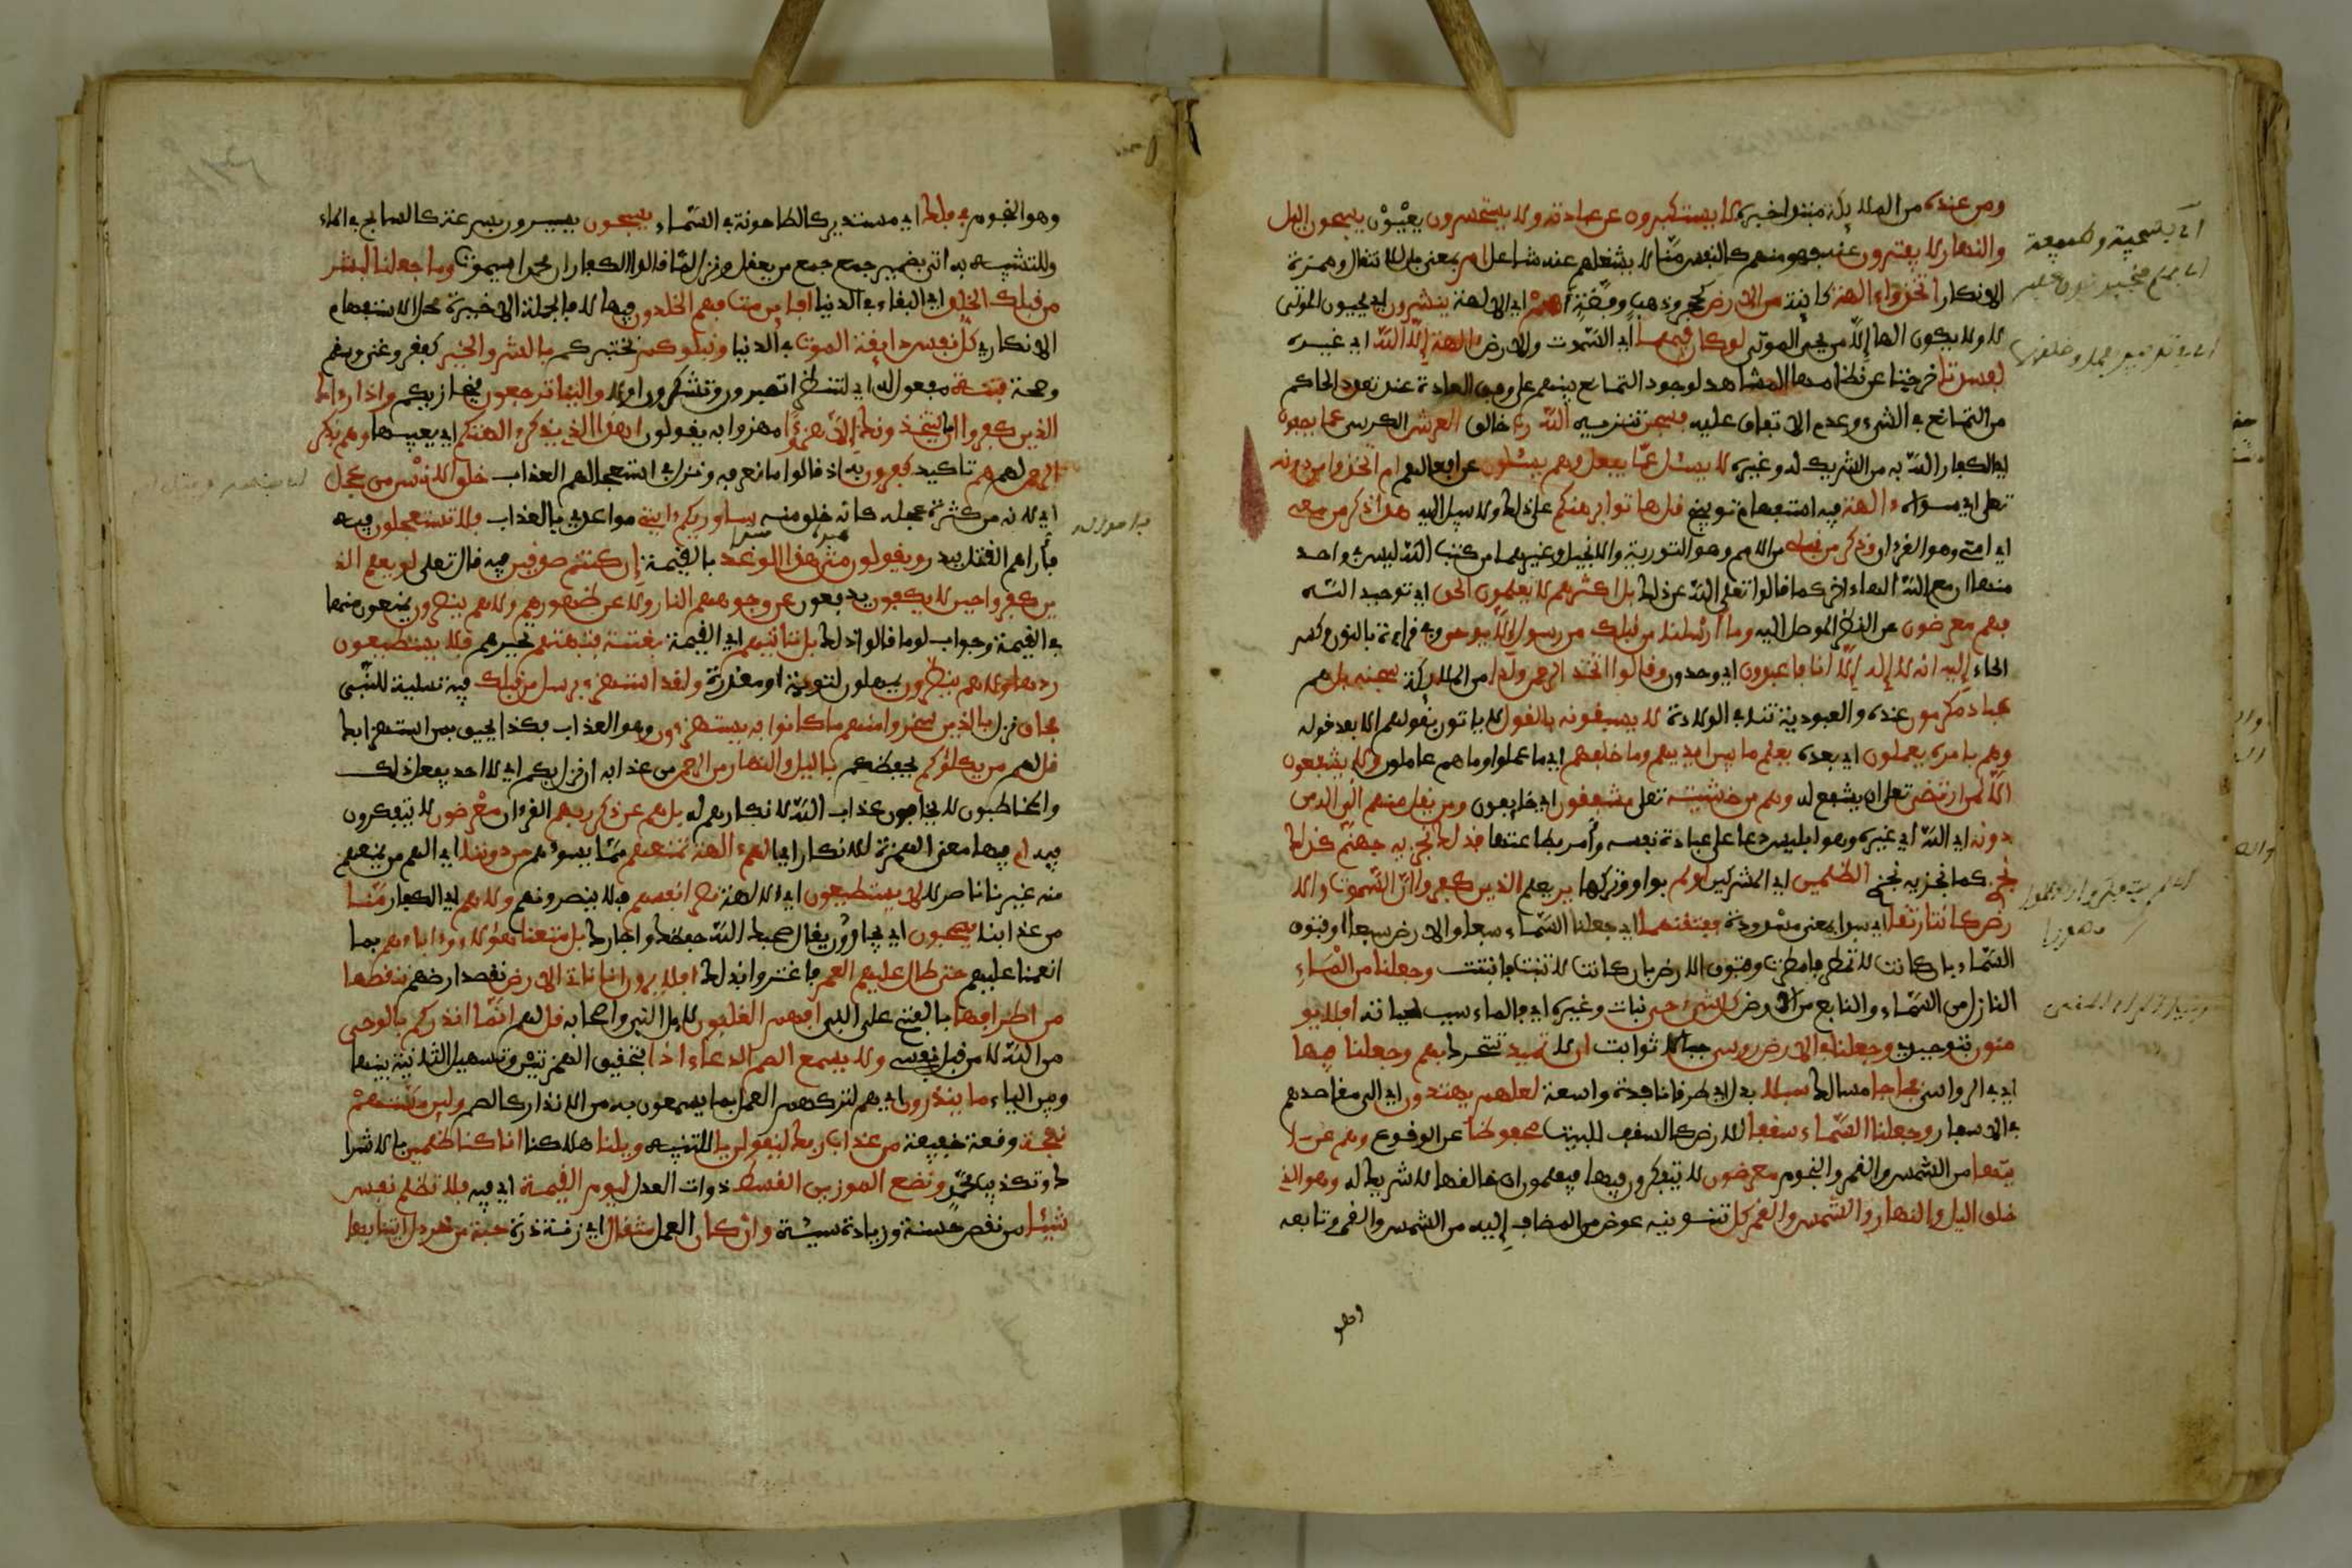 ومن عنده من الملائكة مبتدأ خبره لا يستكبرون عن عبادته ولا يستحسرون يعيون يسبحون اليل
والنهار لا يفترون عنه فهو منهم كالنفس منا لا يشغلهم عنه شاغل ام بمعنى بل للانتقال وهمزة
الانكار اتخذوا ءالهة كائنة من الارض كحجر وذهب وفضة اهم اي الالهة ينشرون اي يحيون الموتى
لا ولا يكون الها الا من يحي الموتى لو كان فيهما اي السموت والارض ءالهة الا الله اي غيره
لفسدتا خرجتا عن نظامهما المشاهد لوجود التمانع بينهم على وفق العادة عند تعدد الحاكم
من التمانع في الشيء وعدم الاتفاق عليه فسبحن تنزيه الله رب خالق العرش الكرسي عما يصفون
اي الكفار الله به من الشريك له وغيره لا يسئل عما يفعل وهم يسئلون عن افعالهم ام اتخذوا من دونه
تعلى اي سواه ءالهة فيه استفهام توبيخ قل هاتوا برهنكم على ذلك ولا سبيل اليه هذا ذكر من معي
اي امتي وهو القرءان وذكر من قبلي من الامم وهو التورية والانجيل وغيرهما من كتب الله ليس في واحد
منها ان مع الله الها ءاخر كما قالوا تعلى الله عن ذلك بل اكثرهم لا يعلمون الحق اي توحيد الله
فهم معرضون عن النظر الموصل اليه وما ارسلنا من قبلك من رسول الا يوحى وفي قراءة بالنون وكسر
الحاء إليه انه لا إله إلا انا فاعبدون اي وحدون وقالوا اتخذ الرحمن ولدا من الملائكة سبحنه بل هم
عباد مكرمون عنده والعبودية تنافي الولادة لا يسبقونه بالقول لا ياتون بقولهم الا بعد قوله
وهم بامره يعملون اي بعده يعلم ما بين ايديهم وما خلفهم اي ما عملوا وما هم عاملون ولا يشفعون
الا لمن ارتضى تعلى ان يشفع له وهم من خشيته تعلى مشفقون اي خائفون ومن يقل منهم اني اله من
دونه اي الله اي غيره وهو ابليس دعا على عبادة نفسه وامر بطاعتها فذلك نجزيه جهنم كذلك
نجزي كما نجزيه نجزي الظلمين اي المشركين اولم بواو وتركها ير يعلم الذين كفروا ان السموت والا
رض كانتا رتقا اي سدا بمعنى مسدودة ففتقنهما اي جعلنا السماء سبعا والارض سبعا او فتق
السماء بان كانت لا تمطر فامطرت وفتق الارض بان كانت لا تنبت فانبتت وجعلنا من الماء
النازل من السماء والنابع من الارض كل شيء حي نبات وغيره اي فالماء سبب لحياته افلا يو
منون بتوحيدي وجعلنا في الارض روسي جبالا ثوابت ان لا تميد تتحرك بهم وجعلنا فيها
اي في الرواسي فجاجا مسالك سبلا بدل اي طرقا نافذة واسعة لعلهم يهتدون اي الى مقاصدهم
في الاسفار وجعلنا السماء سقفا للارض كالسقف للبيت محفوظا عن الوقوع وهم عن ءا
يتها من الشمس والقمر والنجوم معرضون لا يتفكرون فيها فيعلمون ان خالقها لا شريك له وهو الذي
خلق اليل والنهار والشمس والقمر كل تنوينه عوض من المضاف إليه من الشمس والقمر وتابعه
وهو النجوم في فلك اي مستدير كالطاحونة في السماء يسبحون يسيرون بسرعة كالسابح في الماء
وللتشبيه به اتى بضمير جمع من يعقل ونزل لما قالوا الكفار ان محمدا سيموت وما جعلنا لبشر
من قبلك الخلد اي البقاء في الدنيا افاين مت فهم الخلدون فيها لا فالجملة الاخيرة محل الاستفهام
الانكاري كل نفس ذائقة الموت في الدنيا ونبلوكم نختبركم بالشر والخير كفقر وغنى وسقم
وصحة فتنة مفعول له اي لننظر اتصبرون وتشكرون اولا والينا ترجعون فنجازيكم واذا رءاك
الذين كفروا ان ما يتخذونك الا هزؤا مهزوا به يقولون اهذا الذي يذكر ءالهتكم اي يعيبها وهم بذكر
الرحمن لهم هم تاكيد كفرون به اذ قالوا ما نعرفه ونزل في استعجالهم العذاب خلق الانسن من عجل
اي لانه من كثرة عجله كانه خلق منه ساوريكم ءايتي مواعدي بالعذاب فلا تستعجلون فيه
فاراهم القتل ببدر ويقولون متى هذا الوعد بالقيمة إن كنتم صدقين فيه قال تعلى لو يعلم الذ
ين كفروا حين لا يكفون يدفعون عن وجوههم النار ولا عن ظهورهم ولا هم ينصرون يمنعون منها
في القيمة وجواب لو ما قالوا ذلك بل تاتيهم اي القيمة بغتة فتبهتهم تحيرهم فلا يستطيعون
ردها ولا هم ينظرون يمهلون لتوبة او معذرة ولقد استهزئ برسل من قبلك فيه تسلية للنبي
فحاق نزل بالذين سخروا منهم ما كانوا به يستهزءون وهو العذاب فكذا يحيق بمن استهزا بك
قل لهم من يكلؤكم يحفظكم باليل والنهار من الرحمن من عذابه ان نزل بكم اي لا احد يفعل ذلك
والمخاطبون لا يخافون عذاب الله لانكارهم له بل هم عن ذكر ربهم القرءان معرضون لا يتفكرون
فيه ام فيها معنى الهمزة للانكار اي الهم ءالهة تمنعهم مما يسوءهم من دوننا اي الهم من يمنعهم
منه غيرنا ناصر لا لا يستطيعون اي الالهة نصر انفسهم فلا ينصرونهم ولا هم اي الكفار منا
من عذابنا يصحبون اي يجاورون يقال صحبك الله حفظك واجارك بل متعنا هؤلاء وءاباءهم بما
انعمنا عليهم حتى طال عليهم العمر فاغتروا بذلك افلا يرون انا ناتي الارض نقصد ارضهم ننقصها
من اطرافها بالفتح على النبي افهم الغلبون لا بل النبي واصحابه قل لهم انما انذركم بالوحي
من الله لا من قبل نفسي ولا يسمع الصم الدعاء اذا بتحقيق الهمزتين وتسهيل الثانية بينها
وبين الياء ما ينذرون اي هم لتركهم العمل بما يسمعون به من الانذار كالصم ولين مستهم
نفحة وقعة خفيفة من عذاب ربك ليقولن يا للتنبيه ويلنا هلاكنا انا كنا ظلمين بالاشرا
ك وتكذيب محمد ونضع الموزين القسط ذوات العدل ليوم القيمة اي فيه فلا تظلم نفس
شيئا من نقص حسنة وزيادة سيئة وان كان العمل مثقال اي زنة ذرة حبة من خردل اتينا بها